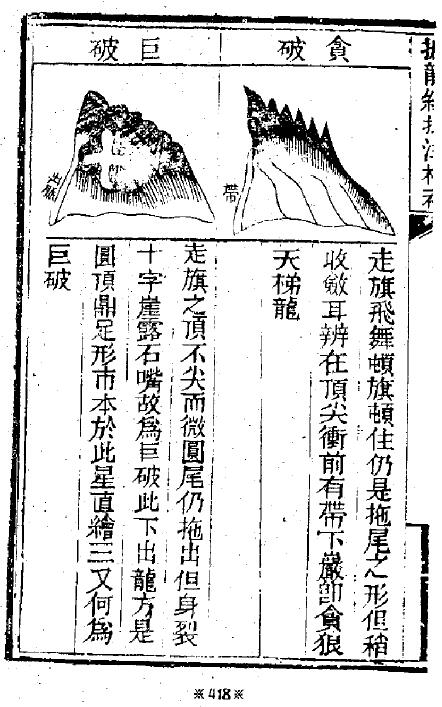 貪破
帶
走旗飛舞頓旗頓住仍是拖尾之形但稍
收斂耳辨在頂尖衝前有帶下嚴卽貪狼
天梯龍
巨破
走旗之頂不尖而微圓尾仍拖出但身裂
十字崖露石嘴故爲巨破此下出龍方是
圓頂鼎足形市本於此星直繪三又何爲
巨破
※418※